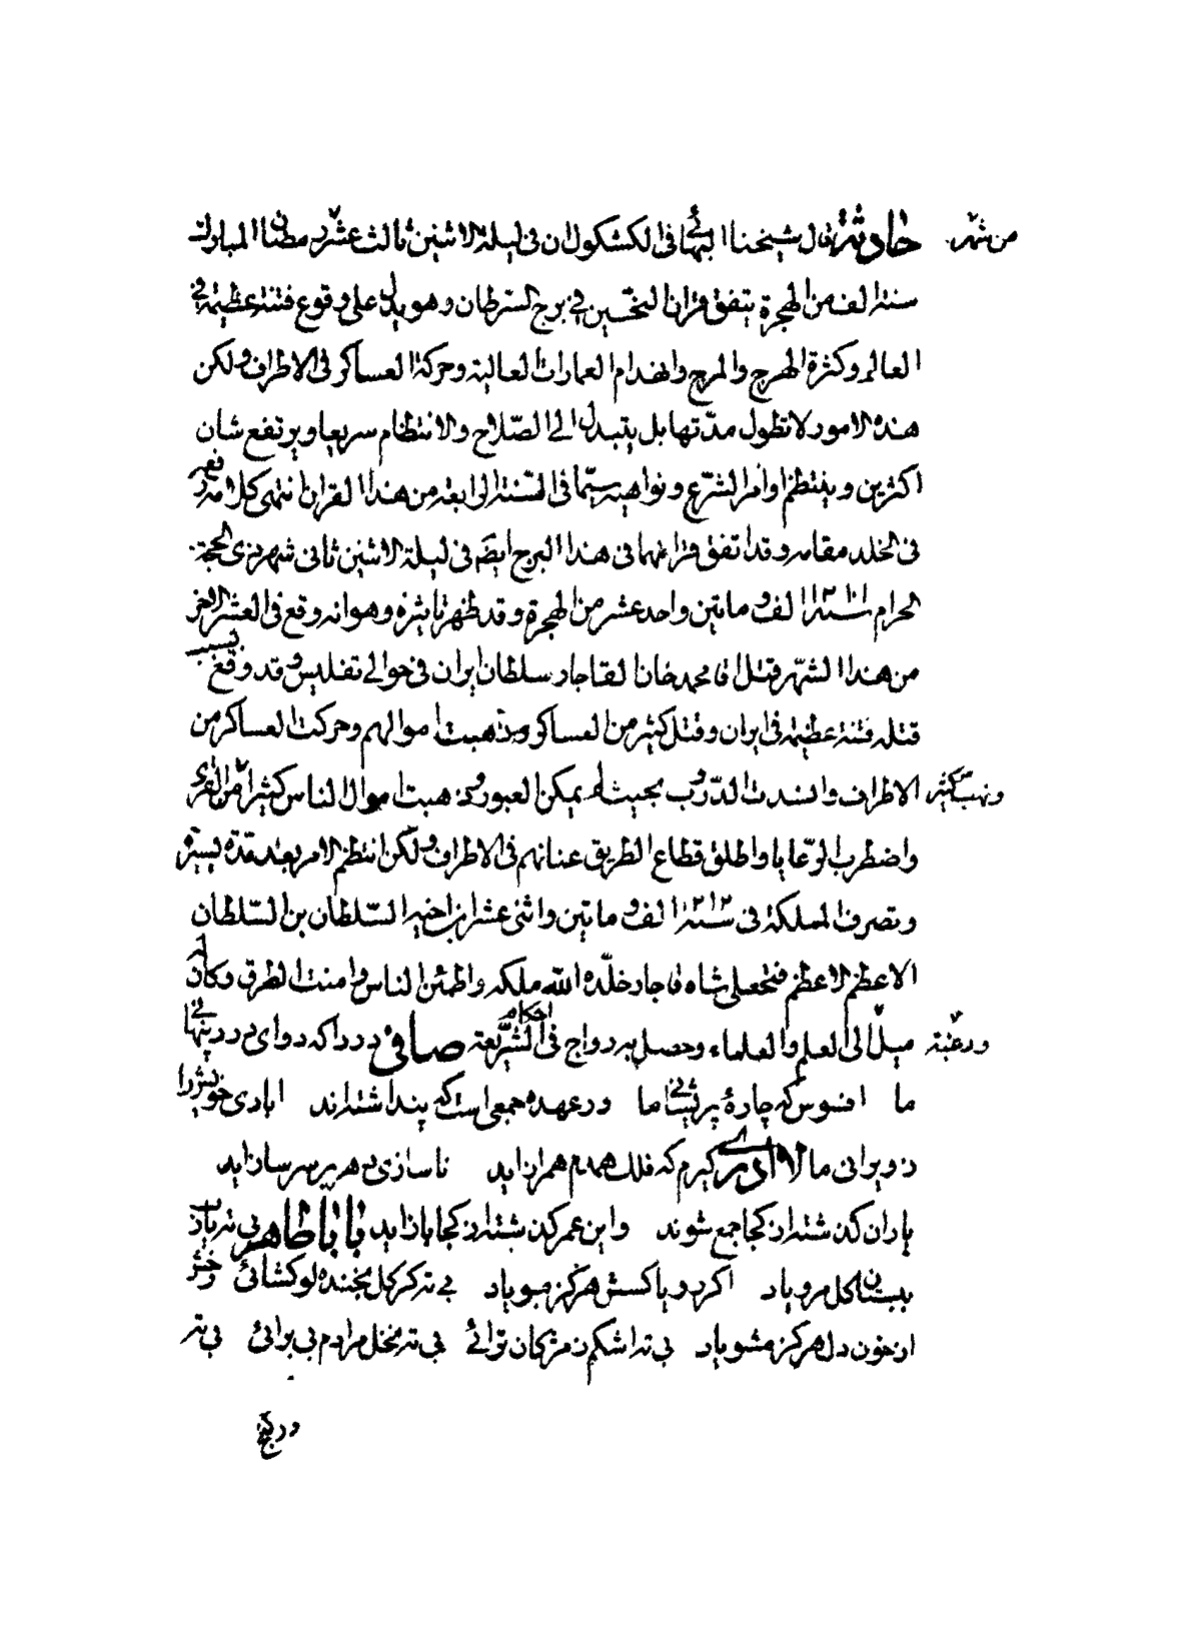 حادثة قال شيخنا البهائي في الكشكول ان في ليلة الاثنين ثالث عشر رمضان المبارك
من شهر
سنة الف من الهجرة يتفق قران النحسين في برج السرطان وهو يدل على وقوع فتنة عظيمة في
العالم وكثرة الهرج والمرج وانهدام العمارات العالية وحركة العساكر في الاطراف ولكن
هذه الامور لا تطول مدتها بل يتبدل الى الصلاح والانتظام سريعا ويرتفع شان
اكثرين وينتظم اوامر الشرع ونواهيه سيما في السنة الرابعة من هذا القران انتهى كلامه رفع
في الخلد مقامه وقد اتفق قرانهما في هذا البرج ايضا في ليلة الاثنين ثاني شهر ذي الحجة
الحرام سنة ١٢١١ الف وماتين واحد عشر من الهجرة وقد ظهر تاثيره وهو انه وقع في العشر الاخر
من هذا الشهر قتل اقا محمد خان القاجار سلطان ايران في حوالي تفليس وقد وقع بسبب
قتله فتنة عظيمة في ايران وقتل كثير من العساكر وذهبت اموالهم وحركت العساكر من
الاطراف وانسدت الدروب بحيث لم يمكن العبور وذهبت اموال الناس كثيرا من القرى
ونهب كثير
واضطرب الرعايا واطلق قطاع الطريق عنانهم في الاطراف ولكن انتظم الامر بعد مدة يسيرة
وتصرف المملكة في سنة ١٢١٢ الف وماتين واثنى عشر ابن اخيه السلطان بن السلطان
الاعظم الاعظم فتحعلى شاه قاجار خلده الله ملكه واطمئن الناس وامنت الطرق وكان له
ميل الى العلم والعلماء وحصل به رواج في احكام الشريعة صافى دردا كه دواى درد پنهانى
ورغبة
ما افسوس كه چارهٔ پريشانى ما در عهدهٔ جمعى است كه پنداشته‌اند ابادى خويش را
ز ويرانى ما لا ادرى گيرم كه فلك همدم همراز ايد ناسازى دهر بر سر ساز ايد
ياران كه گذشتند از كجا جمع شوند واين عمر گذشته از كجا باز ايد بابا طاهر بى ته يارب
ببستان گل مروياد اگر رويا كسش هرگز مبوياد بى ته گر كل بخنده لو گشائى رخش
از خون دل هرگز مشوياد بى ته اشكم ز مژگان تر آئى بى ته نخل مرادم بى بر آئى بى ته
در كنج